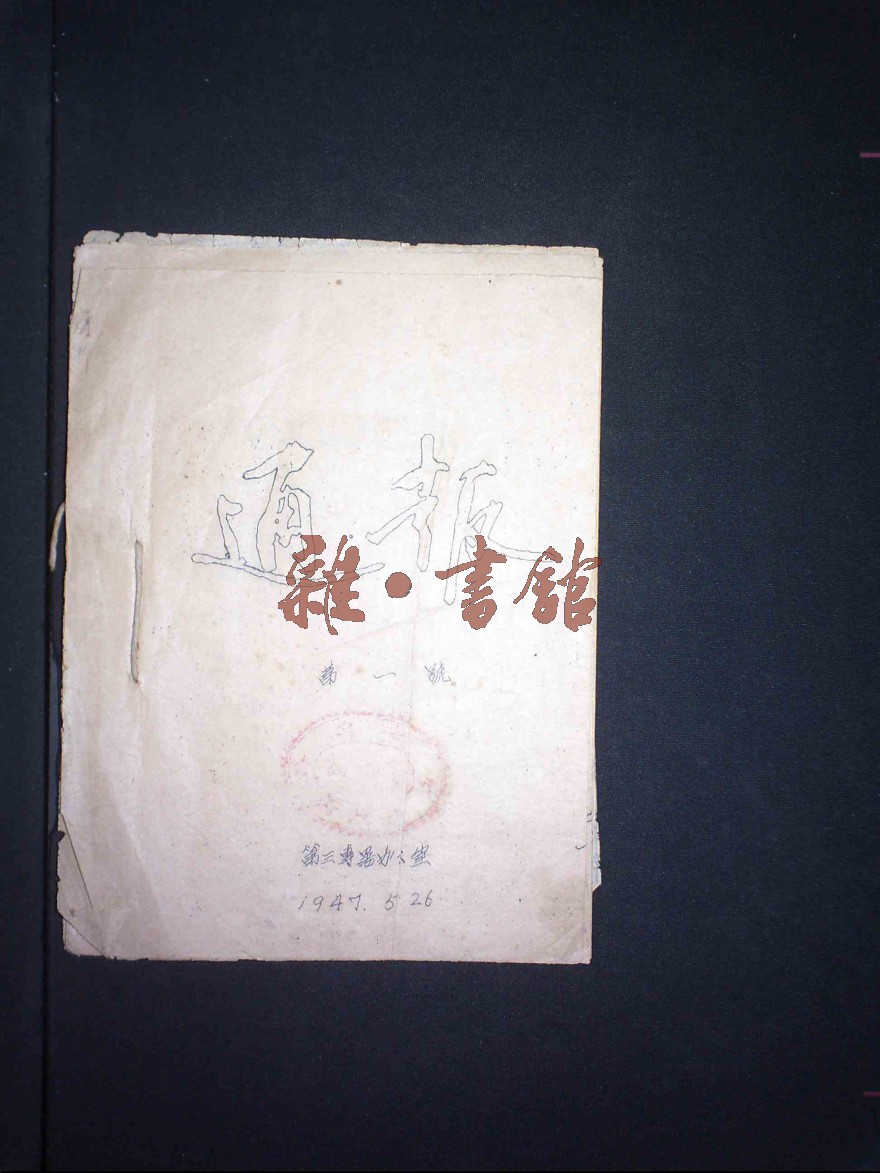 通報
雜·書館
第一號
第三專署办公室
1947.5.26